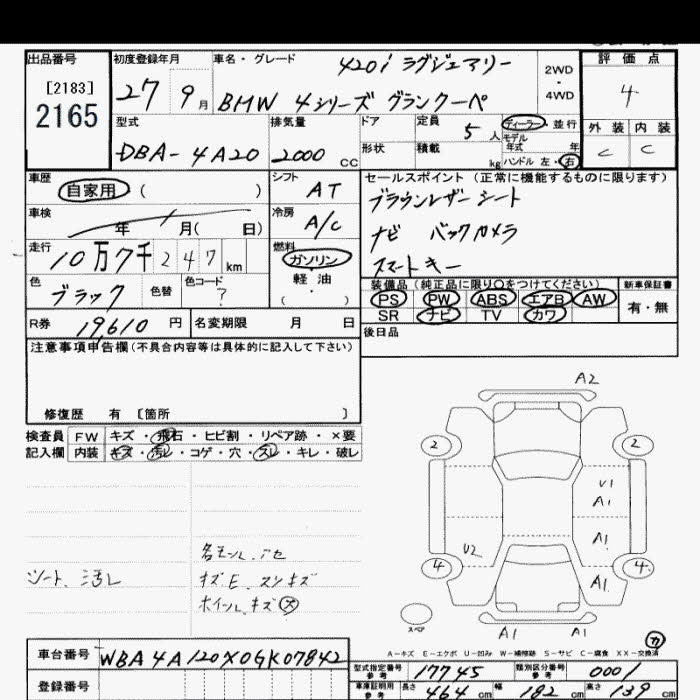 出品番号 初度登録年月 車名・グレード 420i ラグジュアリー 2WD・4WD 評価点
[2183]
2165 27 9月 BMW 4シリーズ グランクーペ 4
型式 排気量 ドア 定員 5人 ディーラー・並行 外装 内装
DBA-4A20 2000cc 形状 積載 kg モデル年式 年 ハンドル 左・右 C C
車歴 自家用 ( ) シフト AT セールスポイント (正常に機能するものに限ります)
ブラウンレザーシート
車検 年 月( 日) 冷房 A/C ナビ バックカメラ
走行 10万7千247km 燃料 ガソリン スマートキー
色 ブラック 色替 色コード ? 軽油 ( )
装備品 (純正品に限り○をつけてください) 新車保証書
PS PW ABS エアB AW 有・無
SR ナビ TV カワ
R券 19610円 名変期限 月 日 後日品
注意事項申告欄(不具合内容等は具体的に記入して下さい)
修復歴 有 [箇所 ]
検査員 FW キズ・飛石・ヒビ割・リペア跡・×要
記入欄 内装 キズ・汚レ・コゲ・穴・スレ・キレ・破レ
A2
2 2
U1
A1
A1
U2
4 4
A1
スペア A1 A1
各モール、アセ
シート、汚レ キズE、スリキズ
ホイールキズ
A-キズ E-エクボ U-凹み W-補修跡 S-サビ C-腐食 XX-交換済
カ
車台番号 WBA4A120X0GK07842
型式指定番号 参考 17745 類別区分番号 参考 0001
登録番号 車庫証明用 参考 長さ 464cm 幅 182cm 高さ 139cm